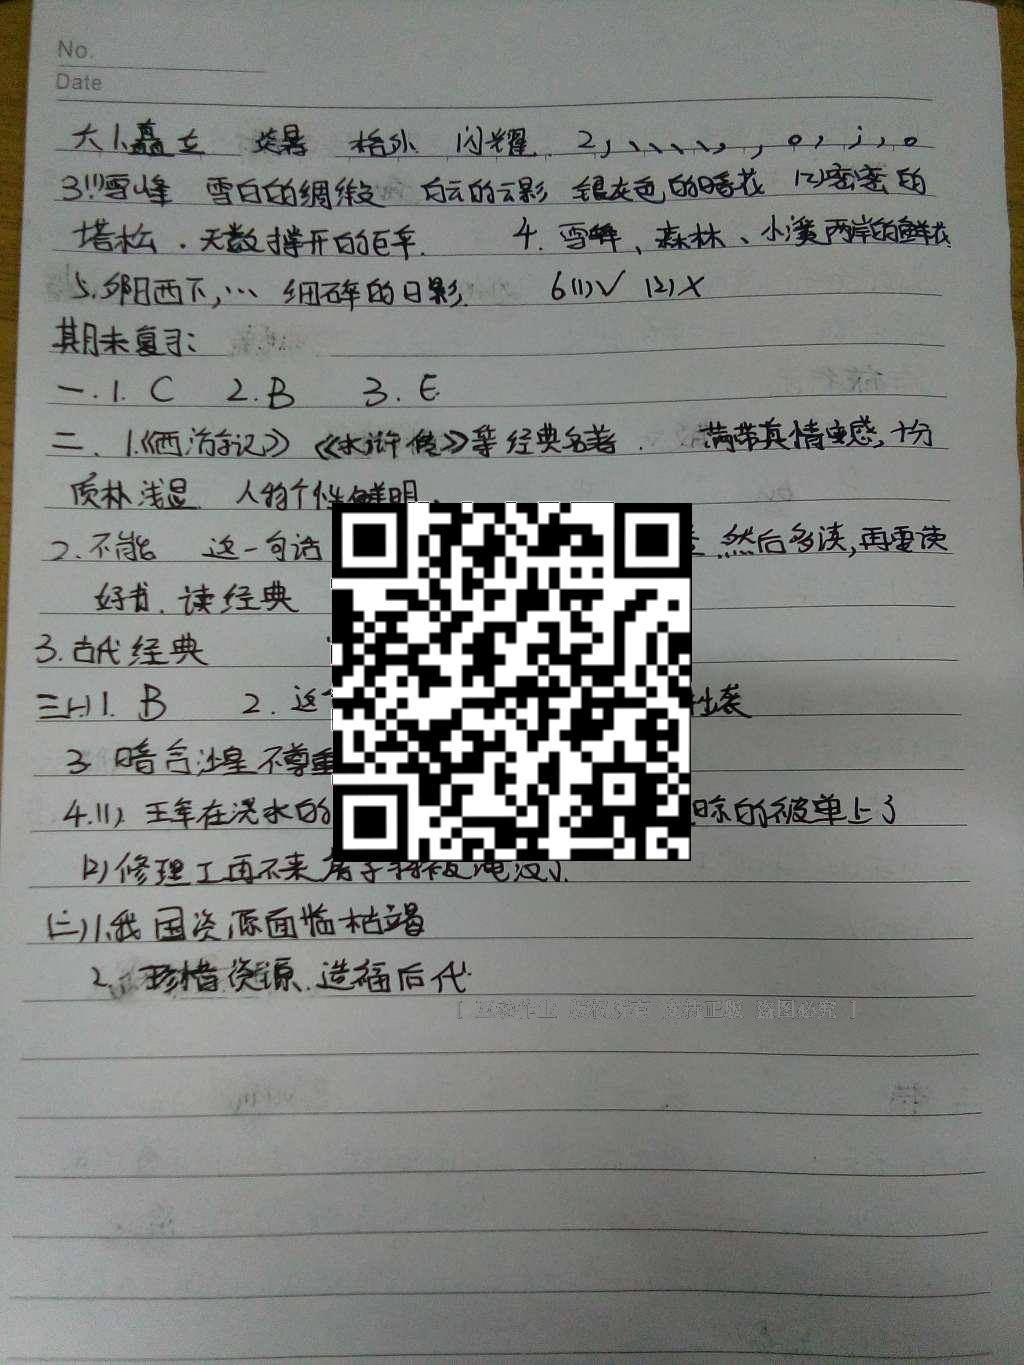 No.
Date
六 1.矗立 炎暑 格外 闪耀 2,、、、、,,。,;,。
3.(1)雪峰 雪白的绸缎 白云的云影 银灰色的暗花 (2)密密的
塔松.无数撑开的巨伞. 4.雪峰、森林、小溪两岸的鲜花
5.夕阳西下,… 细碎的日影. 6(1)√ (2)×
期末复习:
一.1.C 2.B 3.E
二、1.《西游记》《水浒传》等经典名著. 满带真情实感,十分
质朴浅显 人物个性鲜明.
2.不能 这一句话 然后多读,再要读
好书.读经典
3.古代经典
三(一)1.B 2.这 出袭
3 暗含 不尊重
4.(1)王军在浇水的 晾的被单上了
(2)修理工再不来房子将被淹没了.
(二)1.我国资源面临枯竭
2.珍惜资源.造福后代.
[ 互动作业 版权所有 支持正版 盗图必究 ]